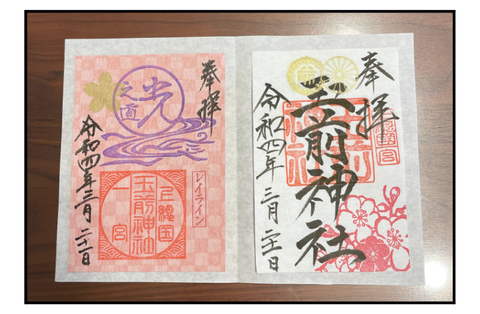 奉拝
玉前神社
令和四年 三月二十一日
奉拝
光
之道
レイライン
上総国
玉前神社
一宮
令和四年三月二十一日